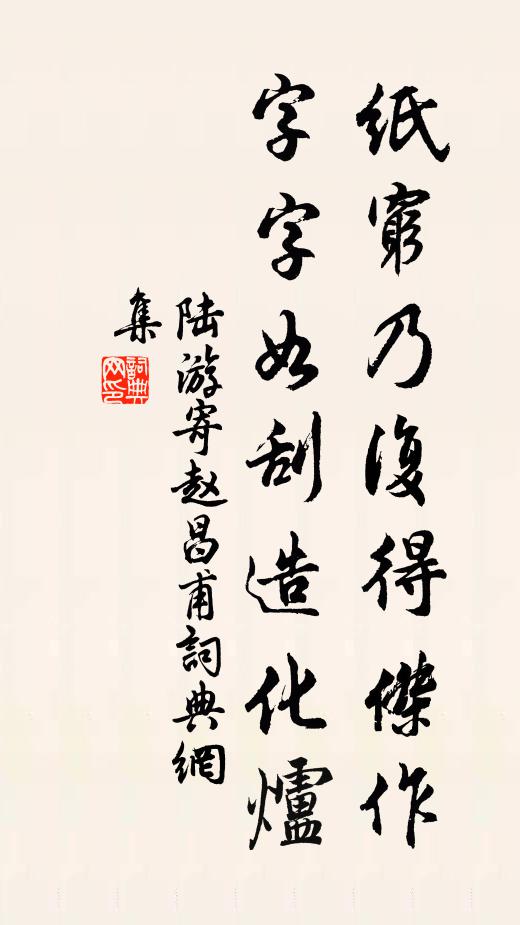 紙窮乃復得傑作
字字如刮造化爐
陆游寄赵昌甫詞典網
集
詞典
网印